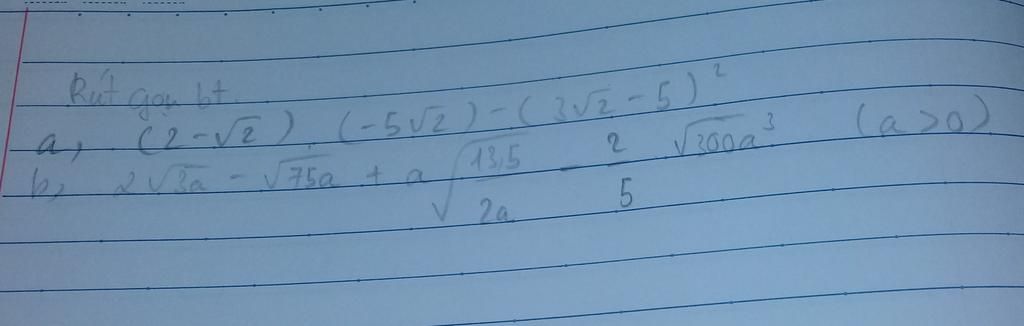 Rút gọn bt
a, (2 - √2) . (-5√2) - (3√2 - 5)²
b, 2√3a - √75a + a√(13,5/2a) - 2/5 √300a³ (a > 0)